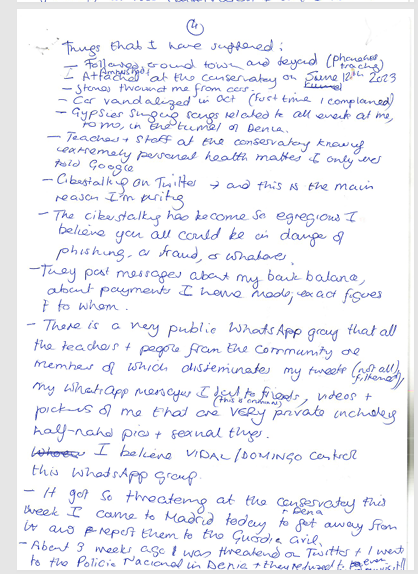 4
Things that I have suffered:
- Followed around town and beyond (phones tracking)
- Ambushed &
I Attacked at the conservatory on June 12th, 2023
- Stones thrown at me from cars.
- Car vandalized in Oct (first time I complained)
- Gypsies singing songs related to all events at me,
to me, in the tunnel of Denia.
- Teachers + staff at the conservatory knowing
extremely personal health matters I only ever
told Google
- Ciberstalking on Twitter → and this is the main
reason I'm writing
- The ciberstalking has become so egregious I
believe you all could be in danger of
phishing, or fraud, or whatever.
- They post messages about my bank balance,
about payments I have made, exact figures
& to whom.
- There is a very public WhatsApp group that all
the teachers + people from the community are
members of which disseminates my tweets (not all, filtered),
my WhatsApp messages I sent to friends, videos +
(this is criminal)
pictures of me that are VERY private including
half-naked pics + sexual things.
I believe VIDAL/DOMINGO control
this WhatsApp Group.
- It got so threatening at the conservatory this
+ Denia
week I came to Madrid today to get away from
it and report them to the Guardia Civil.
- About 3 weeks ago I was threatened on Twitter + I went
to the Policia Nacional in Denia + they refused to even